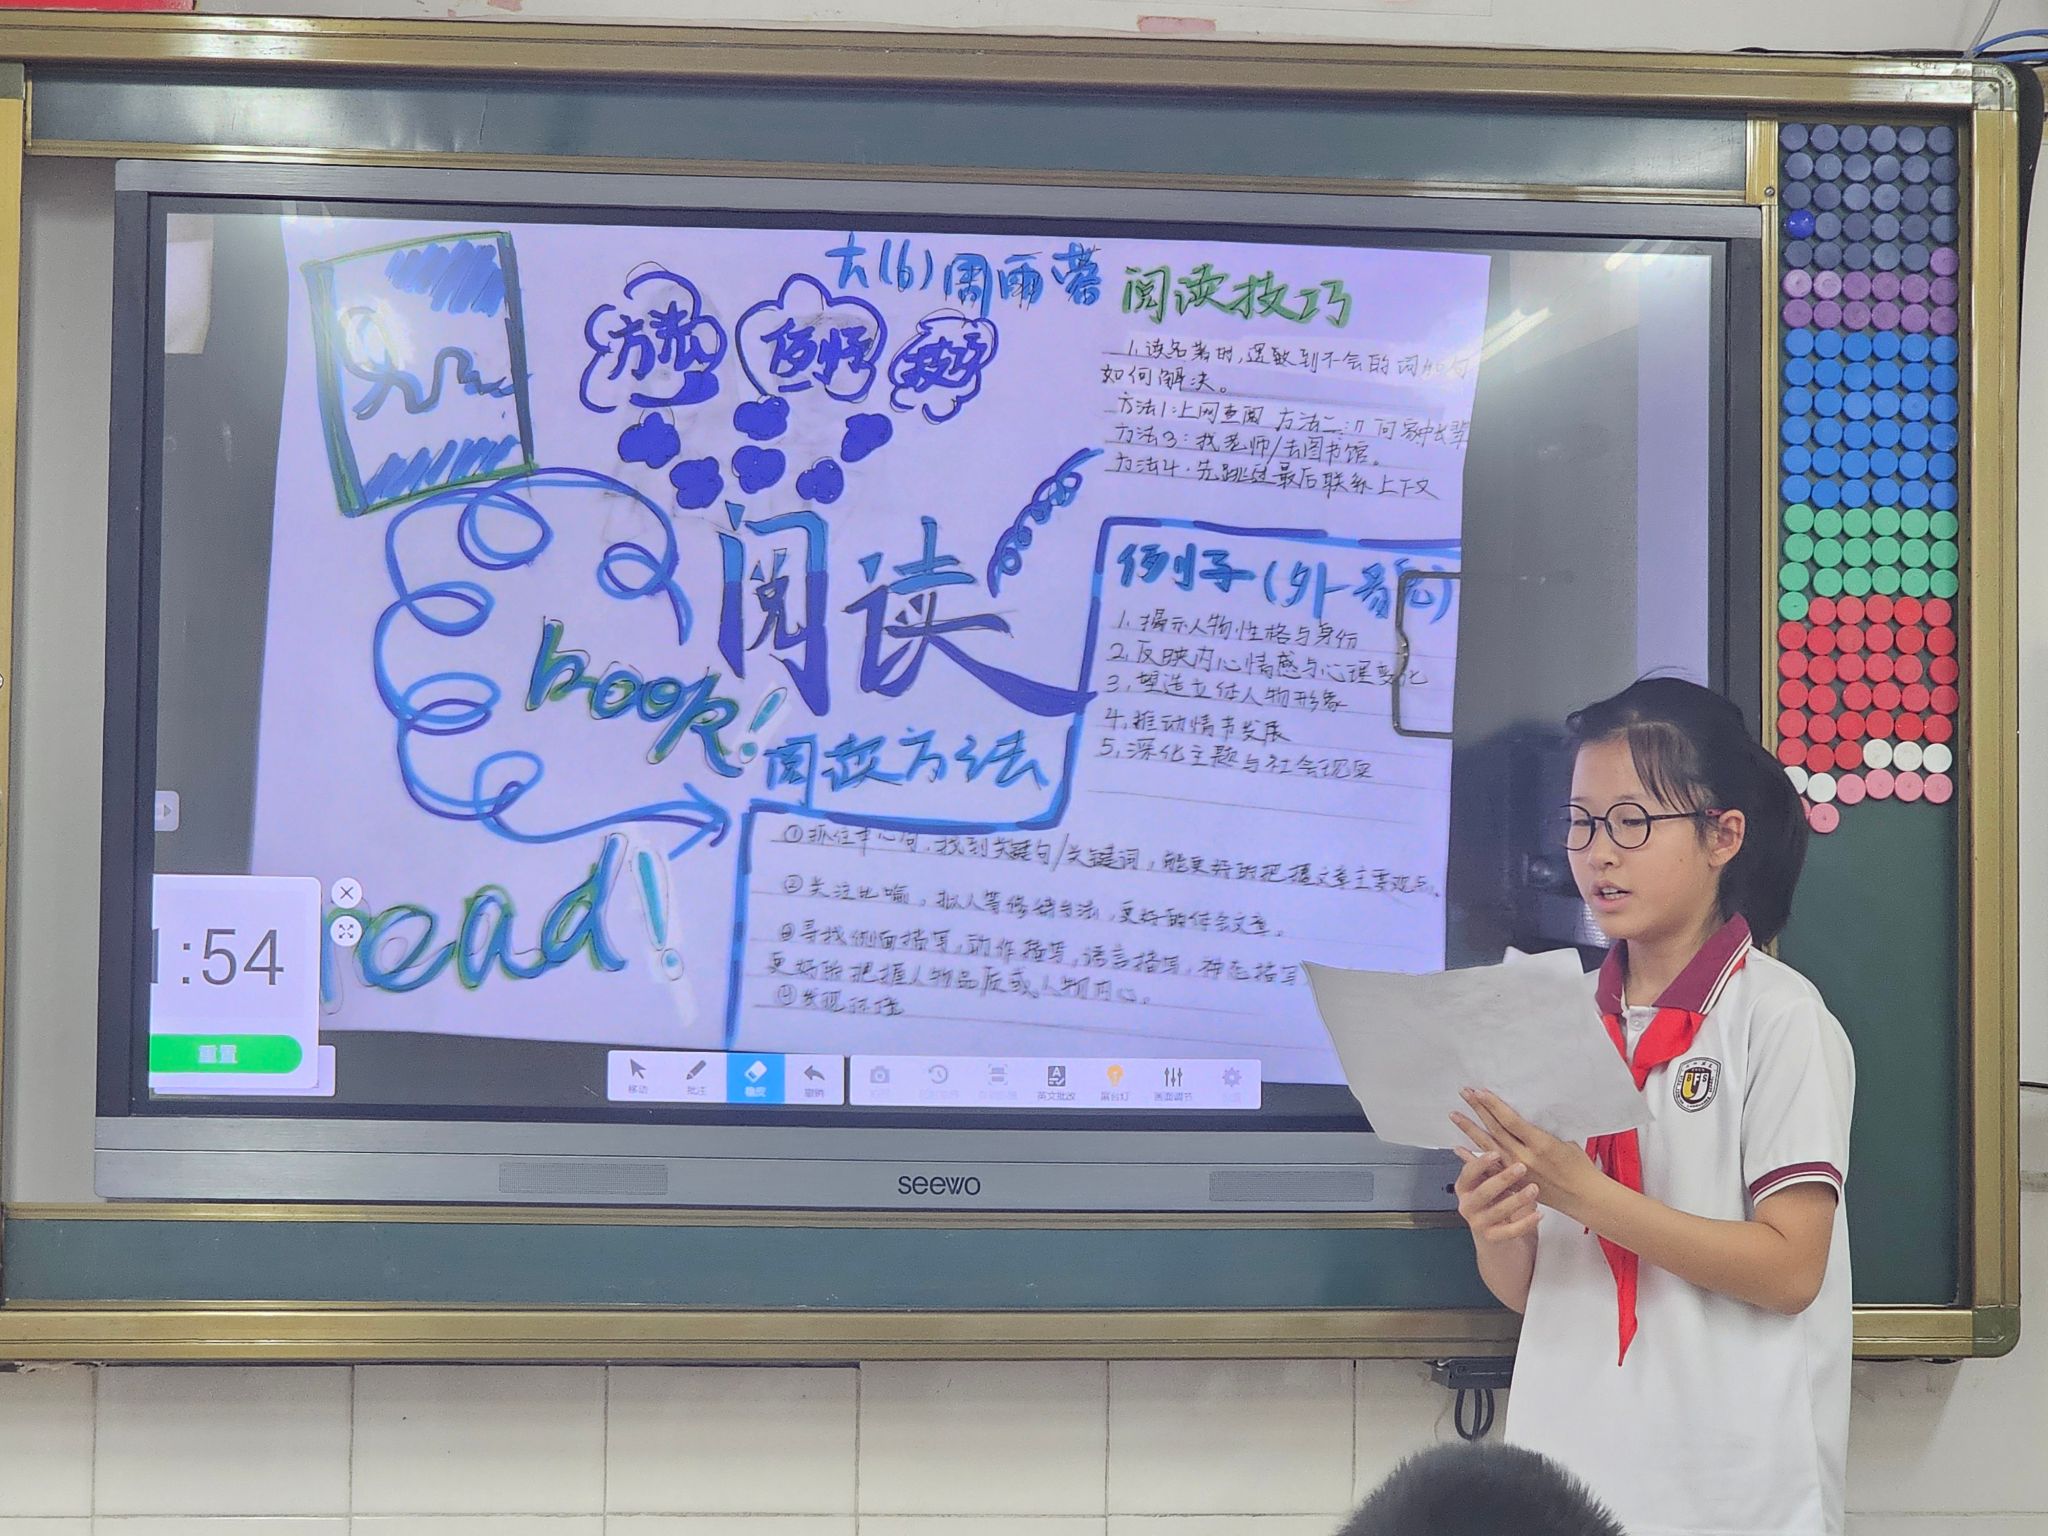 六(6)周雨蓉
方法
例子
技巧
阅读
book!
read!
阅读技巧
1.读名著时,遇到不会的词如何
如何解决。
方法1:上网查阅 方法二:问家中长辈
方法3:找老师/去图书馆。
方法4.先跳过最后联系上下文
例子(外貌)
1.揭示人物性格与身份
2.反映内心情感与心理变化
3.塑造立体人物形象
4.推动情节发展
5.深化主题与社会现实
阅读方法
①抓住中心句,找到关键句/关键词,能更好的把握文章主要观点。
②关注比喻,拟人等修辞手法,更好的体会文章。
③寻找侧面描写,动作描写,语言描写,神态描写
更好的把握人物品质或人物内心。
④发现
1:54
重置
移动 批注 橡皮 撤销 英文批改 展台灯 画面调节
seewo
BFS